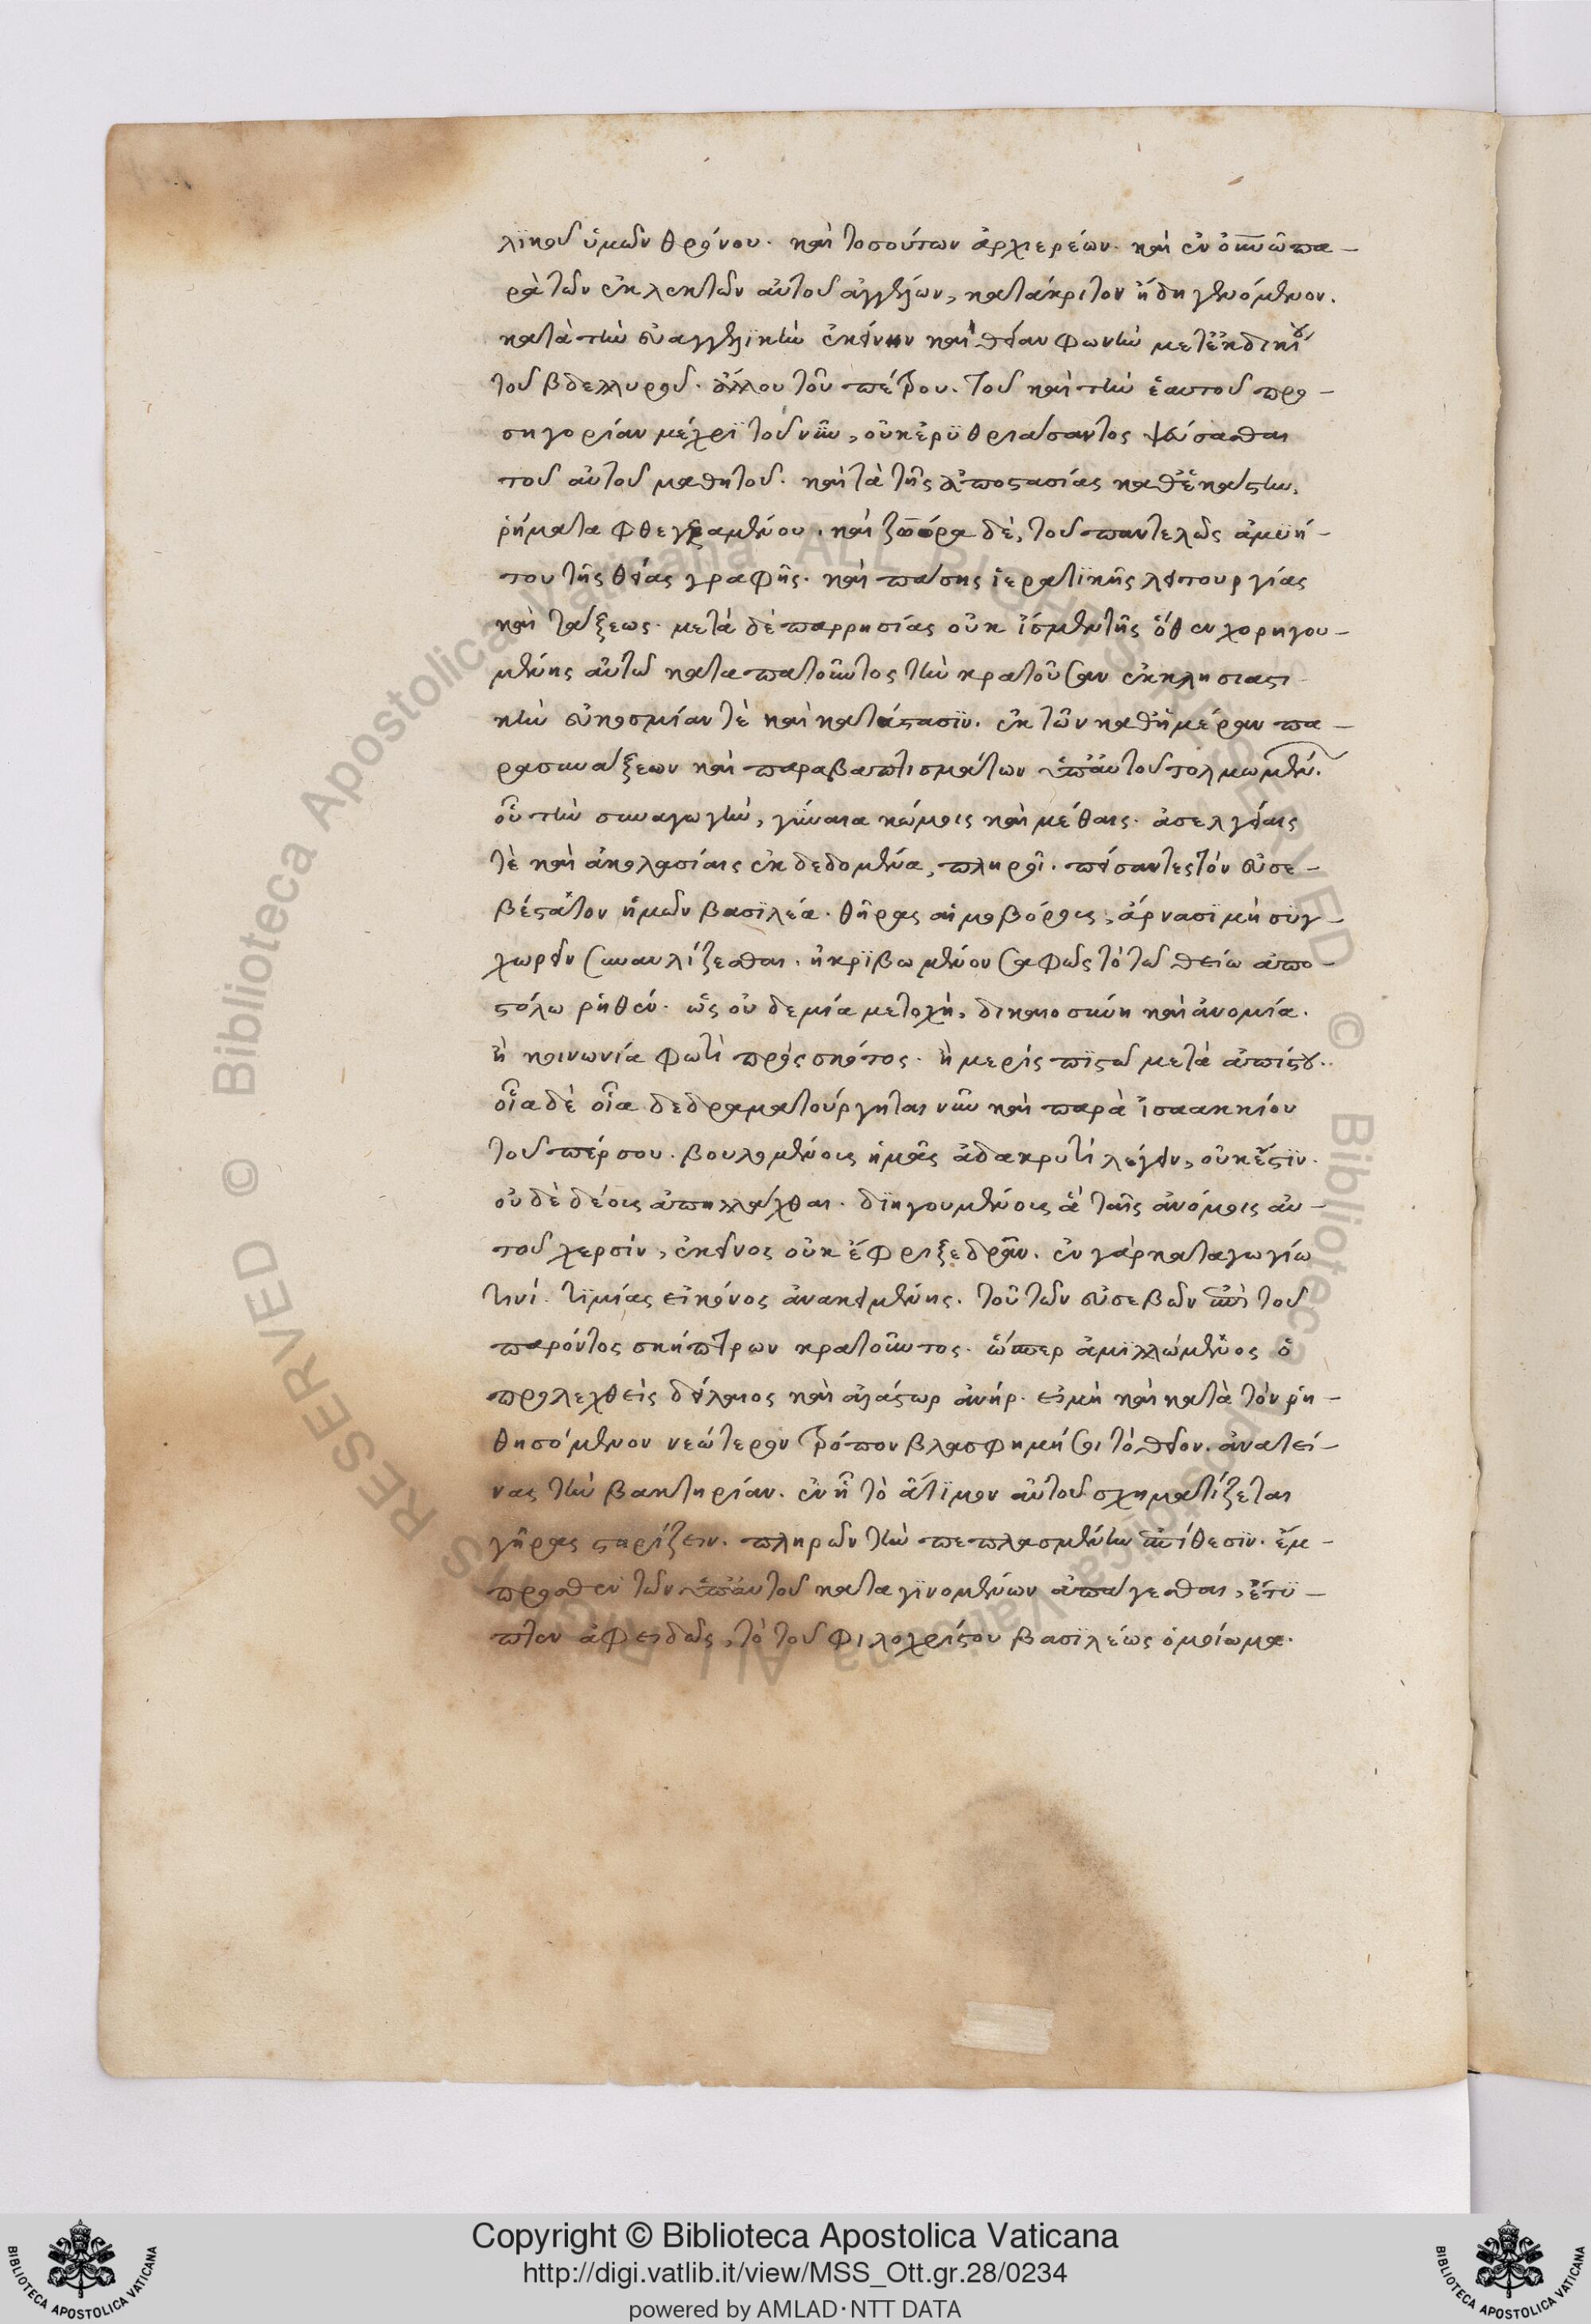 λϊκοῦ ὑμῶν θρόνου. καὶ τοσούτων ἀρχιερέων. καὶ ἐν οὐνῶ πα-
ρὰ τῶν ἐκλεκτῶν αὐτοῦ ἀγγέλων, κατάκριτον ἤδη γενόμενον.
κατὰ τὴν εὐαγγελϊκὴν ἐκείνην καὶ θείαν φωνὴν μετ' ἐκδικί
τοῦ βδελλυροῦ. ἄλλου τοῦ πέτρου. τοῦ καὶ τὴν ἑαυτοῦ προ-
σηγορίαν μέχρϊ τοῦ νῦν, οὐκ ἐρϋθριάσαντος ψεύσασθαι
τοῦ αὐτοῦ μαθητοῦ. καὶ τὰ τῆς ἀποστασίας καθ' ἑκάστην,
ῥήματα φθεγξαμένου. καὶ ζωόρα δὲ, τοῦ παντελῶς ἀμϋή-
του τῆς θείας γραφῆς. καὶ πάσης ἱερατϊκῆς λειτουργίας
καὶ τάξεως. μετὰ δὲ παρρησίας οὐκ ἴσμεν τῆς ὅθεν χορηγου-
μένης αὐτῶ καταπατοῦντος τὴν κρατοῦσαν ἐκκλησιαστι
κὴν εὐκοσμίαν τὲ καὶ κατάστασϊν. ἐκ τῶν καθ' ἡμέραν πα-
ρασυνάξεων καὶ παραβαπτισμάτων ὑπ' αὐτοῦ τολμωμέν.
οὗ τὴν συναγωγὴν, γύναια κώμοις καὶ μέθαις. ἀσελγείαις
τὲ καὶ ἀκολασίαις ἐκδεδομένα, πληροῖ. πείσαντες τὸν εὐσε-
βέστατον ἡμῶν βασϊλέα. θῆρας αἱμοβόρους, ἀρνάσϊ μὴ σϋγ-
χωρεῖν συναυλίζεσθαι. ἠκρϊβωμένον σαφῶς τὸ τῶ θείω ἀπο-
στόλω ῥηθέν. ὡς οὐδεμία μετοχὴ, δικαιοσύνη καὶ ἀνομία.
ἢ κοινωνία φωτὶ πρὸς σκότος. ἢ μερὶς πϊστῶ μετὰ ἀπίστου..
οἷα δὲ οἷα δεδραματούργηται νῦν καὶ παρὰ ἰσαακκίου
τοῦ πέρσου. βουλομένοις ἡμᾶς ἀδακρυτὶ λέγειν, οὐκ ἔστϊν.
οὐδὲ δέους ἀπηλλάχθαι. δϊηγουμένοις ἃ ταῖς ἀνόμοις αὐ-
τοῦ χερσίν, ἐκεῖνος οὐκ ἔφριξε δρᾶν. ἐν γὰρ καταγωγίω
τινί. τϊμίας εἰκόνος ἀνακειμένης. τοῦ τῶν εὐσεβῶν ἐπὶ τοῦ
παρόντος σκήπτρων κρατοῦντος. ὥσπερ ἀμϊλλώμενος ὁ
προλεχθεὶς δείλαιος καὶ ἀλάστωρ ἀνήρ. εἰ μὴ καὶ κατὰ τὸν ῥη-
θησόμενον νεώτερον τρόπον βλασφημήσοι τὸ θεῖον. ἀνατεί-
νας τὴν βακτηρίαν. ἐν ἧ τὸ ἄτϊμον αὐτοῦ σχηματίζεται
γῆρας στηρίζειν. πληρῶν τὴν πεπλασμένην ἐπίθεσϊν. ἔμ-
προσθεν τῶν ὑπ' αὐτοῦ καταγϊνομένων ἀπάγεσθαι, ἔτϋ-
πτεν ἀφειδῶς, τὸ τοῦ φιλοχρίστου βασϊλέως ὁμοίωμα.
Copyright © Biblioteca Apostolica Vaticana
http://digi.vatlib.it/view/MSS_Ott.gr.28/0234
powered by AMLAD·NTT DATA